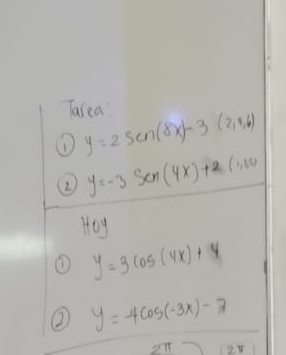 Tarea:
① y=2 sen(8x)-3 (2,4,6)
② y=-3 Sen(4x)+2
Hoy
① y=3 cos (4x) + 4
② y=-4 Cos(-3x)-7
2π 2π